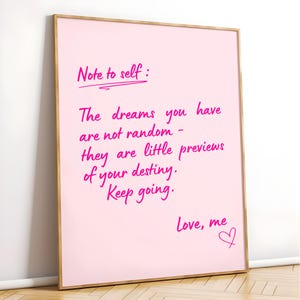 Note to self :
The dreams you have
are not random -
they are little previews
of your destiny.
Keep going.
Love, me